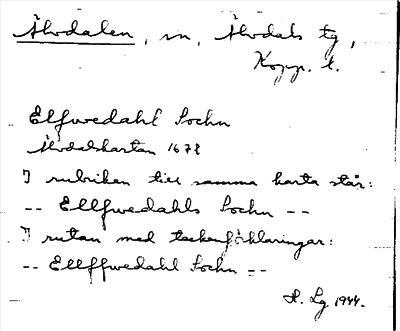 Älvdalen, sn, Älvdals tg,
Kopp. l.
Elfwedahl Sochn
Älvdalskartan 1678
I rubriken till samma karta står:
-- Ellfwedahls Sochn --
I rutan med teckenförklaringar:
-- Ellffwedahl Sochn --
H. Lg. 1944.